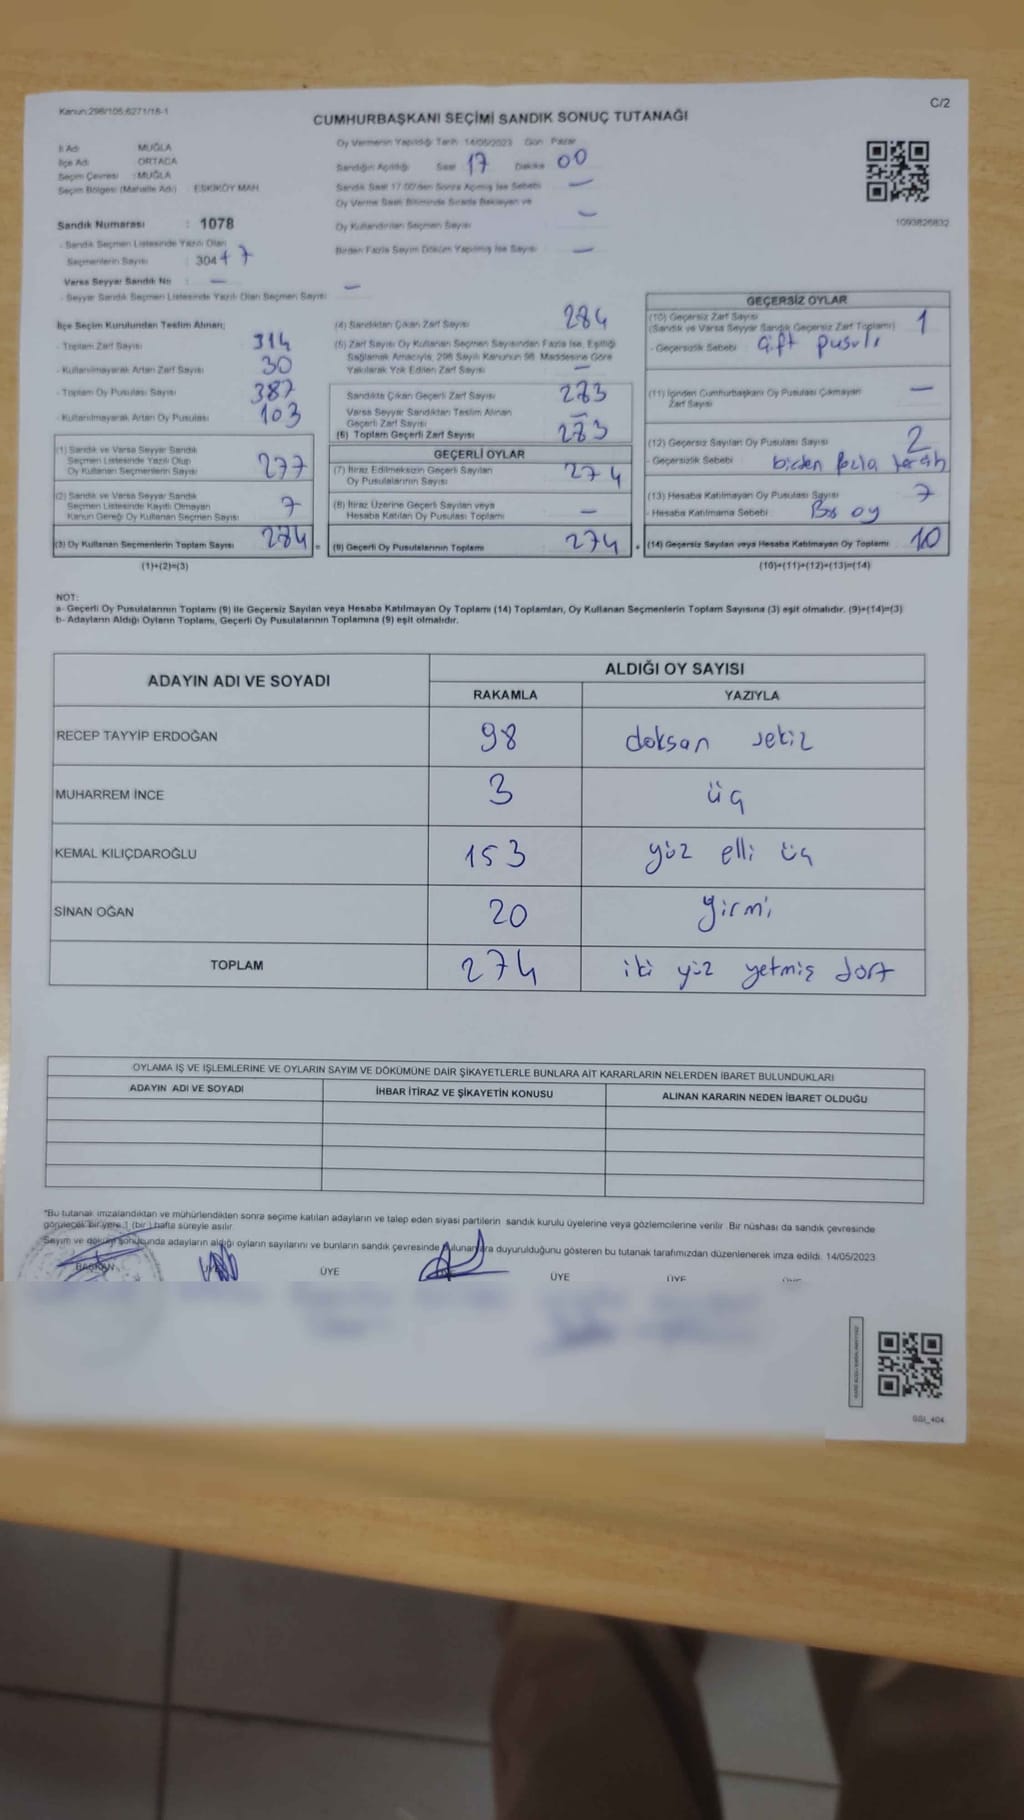 Kanun:298/105,6271/16-1
C/2
CUMHURBAŞKANI SEÇİMİ SANDIK SONUÇ TUTANAĞI
İl Adı MUĞLA
İlçe Adı ORTACA
Seçim Çevresi : MUĞLA
Seçim Bölgesi (Mahalle Adı) ESKİKÖY MAH.
Sandık Numarası : 1078
- Sandık Seçmen Listesinde Yazılı Olan
Seçmenlerin Sayısı : 304 + 7
Varsa Seyyar Sandık No : —
- Seyyar Sandık Seçmen Listesinde Yazılı Olan Seçmen Sayısı —
Oy Vermenin Yapıldığı Tarih 14/05/2023 Gün Pazar
Sandığın Açıldığı Saat 17 Dakika 00
Sandık Saat 17:00'den Sonra Açılmış İse Sebebi —
Oy Verme Saati Bitiminde Sırada Bekleyen ve
Oy Kullandırılan Seçmen Sayısı —
Birden Fazla Sayım Döküm Yapılmış İse Sayısı —
1093826832
İlçe Seçim Kurulundan Teslim Alınan;
- Toplam Zarf Sayısı 314
- Kullanılmayarak Artan Zarf Sayısı 30
- Toplam Oy Pusulası Sayısı 387
- Kullanılmayarak Artan Oy Pusulası 103
(1) Sandık ve Varsa Seyyar Sandık
Seçmen Listesinde Yazılı Olup
Oy Kullanan Seçmenlerin Sayısı 277
(2) Sandık ve Varsa Seyyar Sandık
Seçmen Listesinde Kayıtlı Olmayan
Kanun Gereği Oy Kullanan Seçmen Sayısı 7
(3) Oy Kullanan Seçmenlerin Toplam Sayısı 284 =
(1)+(2)=(3)
(4) Sandıktan Çıkan Zarf Sayısı 284
(5) Zarf Sayısı Oy Kullanan Seçmen Sayısından Fazla İse, Eşitliği
Sağlamak Amacıyla, 298 Sayılı Kanunun 98. Maddesine Göre
Yakılarak Yok Edilen Zarf Sayısı —
Sandıkta Çıkan Geçerli Zarf Sayısı 283
Varsa Seyyar Sandıktan Teslim Alınan
Geçerli Zarf Sayısı —
(6) Toplam Geçerli Zarf Sayısı 283
GEÇERLİ OYLAR
(7) İtiraz Edilmeksizin Geçerli Sayılan
Oy Pusulalarının Sayısı 274
(8) İtiraz Üzerine Geçerli Sayılan veya
Hesaba Katılan Oy Pusulası Toplamı —
(9) Geçerli Oy Pusulalarının Toplamı 274 +
GEÇERSİZ OYLAR
(10) Geçersiz Zarf Sayısı
(Sandık ve Varsa Seyyar Sandık Geçersiz Zarf Toplamı) 1
- Geçersizlik Sebebi Çift pusulı
(11) İçinden Cumhurbaşkanı Oy Pusulası Çıkmayan
Zarf Sayısı —
(12) Geçersiz Sayılan Oy Pusulası Sayısı 2
- Geçersizlik Sebebi birden fazla tercih
(13) Hesaba Katılmayan Oy Pusulası Sayısı 7
- Hesaba Katılmama Sebebi Boş oy
(14) Geçersiz Sayılan veya Hesaba Katılmayan Oy Toplamı 10
(10)+(11)+(12)+(13)=(14)
NOT:
a- Geçerli Oy Pusulalarının Toplamı (9) ile Geçersiz Sayılan veya Hesaba Katılmayan Oy Toplamı (14) Toplamları, Oy Kullanan Seçmenlerin Toplam Sayısına (3) eşit olmalıdır. (9)+(14)=(3)
b- Adayların Aldığı Oyların Toplamı, Geçerli Oy Pusulalarının Toplamına (9) eşit olmalıdır.
ADAYIN ADI VE SOYADI
ALDIĞI OY SAYISI
RAKAMLA YAZIYLA
RECEP TAYYİP ERDOĞAN 98 doksan sekiz
MUHARREM İNCE 3 üç
KEMAL KILIÇDAROĞLU 153 yüz elli üç
SİNAN OĞAN 20 yirmi
TOPLAM 274 iki yüz yetmiş dört
OYLAMA İŞ VE İŞLEMLERİNE VE OYLARIN SAYIM VE DÖKÜMÜNE DAİR ŞİKAYETLERLE BUNLARA AİT KARARLARIN NELERDEN İBARET BULUNDUKLARI
ADAYIN ADI VE SOYADI İHBAR İTİRAZ VE ŞİKAYETİN KONUSU ALINAN KARARIN NEDEN İBARET OLDUĞU
"Bu tutanak imzalandıktan ve mühürlendikten sonra seçime katılan adayların ve talep eden siyasi partilerin sandık kurulu üyelerine veya gözlemcilerine verilir. Bir nüshası da sandık çevresinde
görülecek bir yere 1 (bir ) hafta süreyle asılır.
Sayım ve döküm sonucunda adayların aldığı oyların sayılarını ve bunların sandık çevresinde bulunanlara duyurulduğunu gösteren bu tutanak tarafımızdan düzenlenerek imza edildi. 14/05/2023
BAŞKAN ÜYE ÜYE ÜYE ÜYE ÜYE